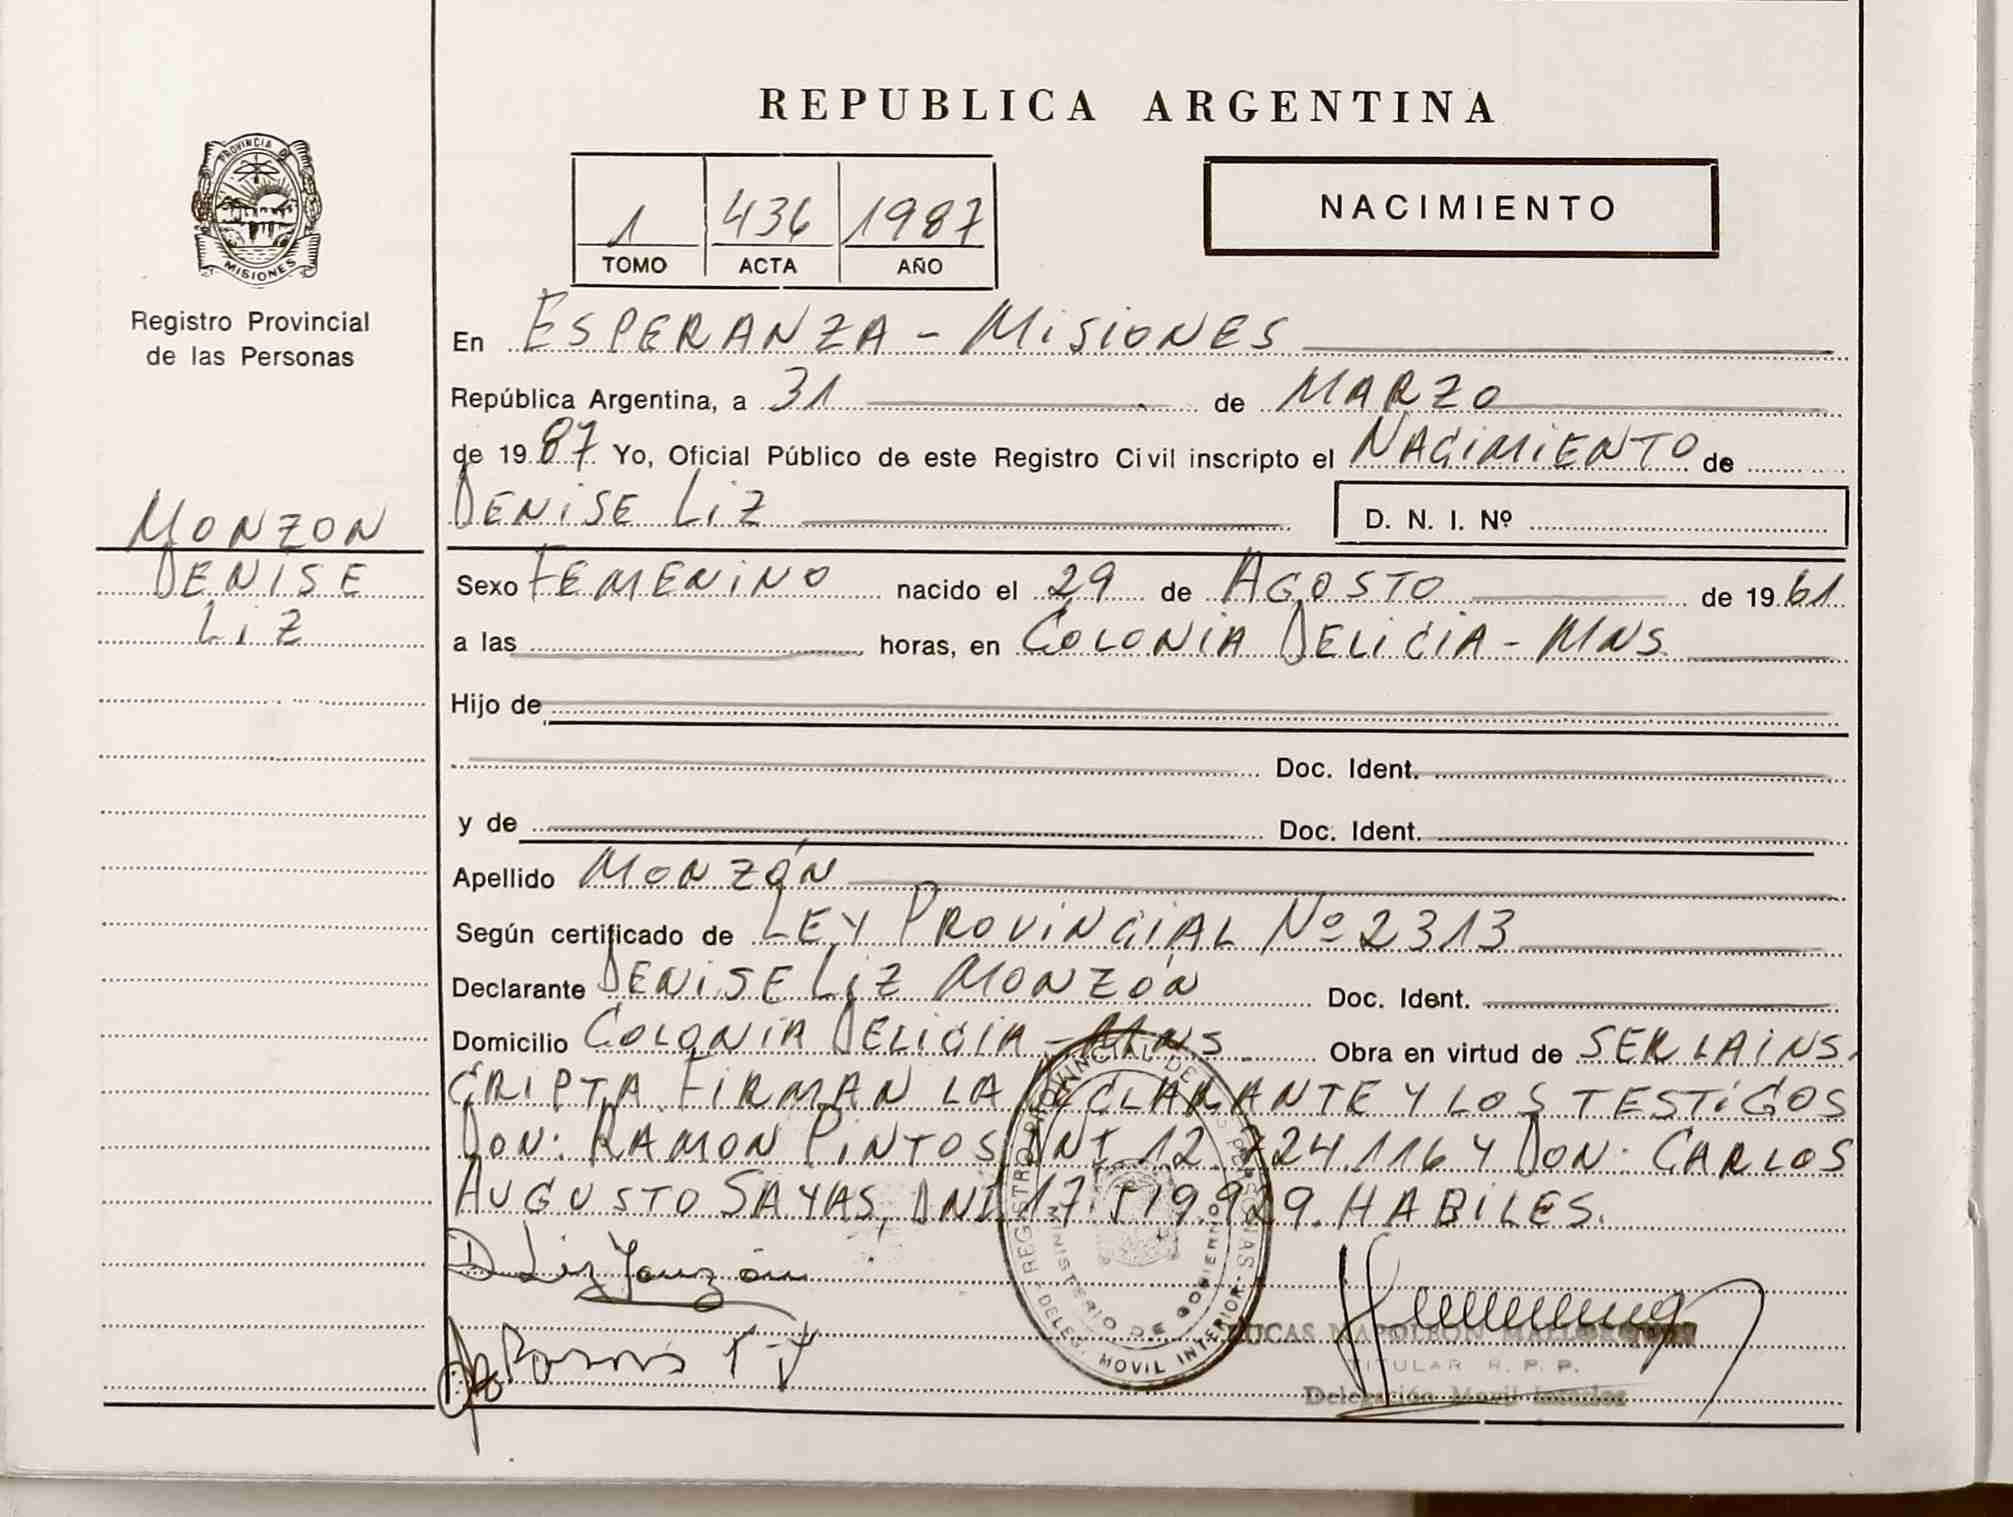 REPUBLICA ARGENTINA
PROVINCIA DE MISIONES
Registro Provincial
de las Personas
1 436 1987
TOMO ACTA AÑO
NACIMIENTO
En ESPERANZA - MISIONES
República Argentina, a 31 de MARZO
de 1987 Yo, Oficial Público de este Registro Civil inscripto el NACIMIENTO de
DENISE LIZ D. N. I. Nº
MONZON
DENISE
LIZ
Sexo FEMENINO nacido el 29 de AGOSTO de 1961
a las horas, en COLONIA DELICIA - MNS.
Hijo de
Doc. Ident.
y de Doc. Ident.
Apellido MONZÓN
Según certificado de LEY PROVINCIAL Nº 2313
Declarante DENISE LIZ MONZÓN Doc. Ident.
Domicilio COLONIA DELICIA - MNS Obra en virtud de SER LA INS-
CRIPTA. FIRMAN LA DECLARANTE Y LOS TESTIGOS
DON: RAMON PINTOS DNI 12.724.116 Y DON: CARLOS
AUGUSTO SAYAS, DNI 17.519.929. HABILES.
D Liz Monzón
REGISTRO PROVINCIAL DE LAS PERSONAS
MINISTERIO DE GOBIERNO
DELEG. MOVIL INTERIOR
LUCAS NAPOLEON
TITULAR R. P. P.
Delegación Movil Interior